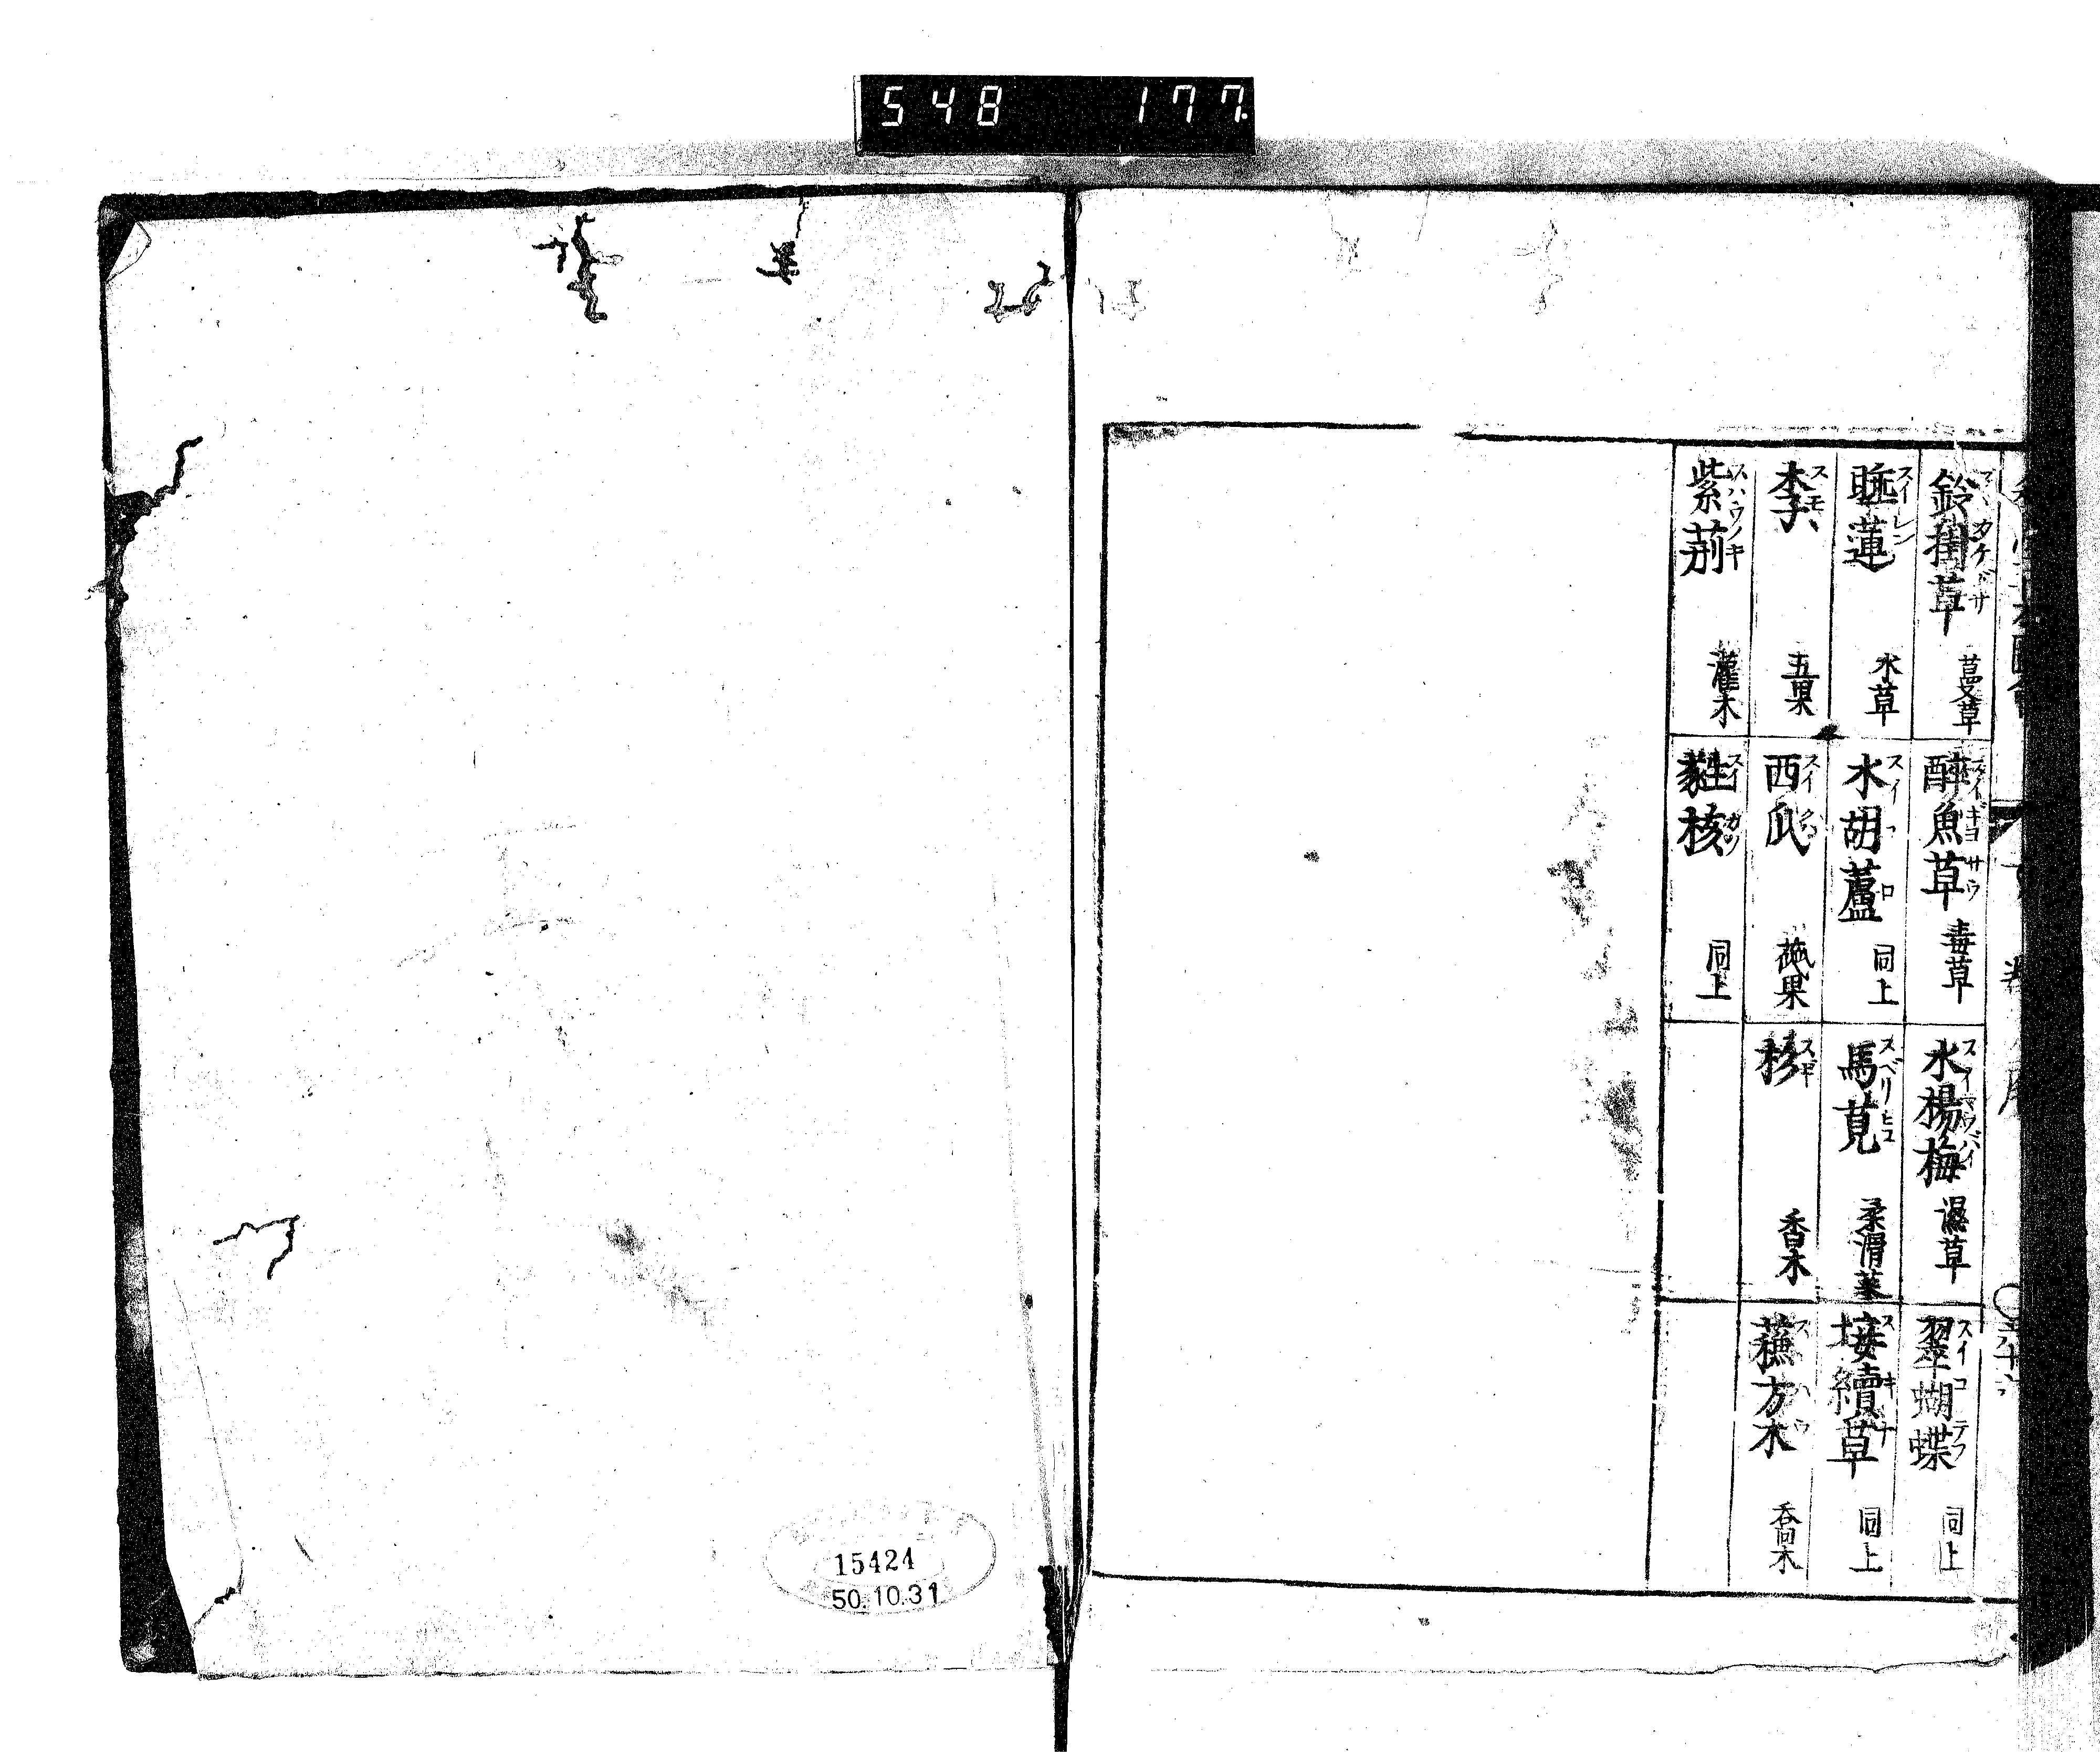 548 177.
鈴掛草 カケグサ 蔓草
酔魚草 スイギヨサウ 毒草
水楊梅 スイヤウバイ 濕草
翠蝴蝶 スイコテフ 同上
睡蓮 スイレン 水草
水胡蘆 スイコロ 同上
馬莧 スベリヒユ 柔滑菜
接續草 スギナ 同上
李 スモヽ 五果
西瓜 スイクワ 蓏果
杉 スギ 香木
蘓方木 スハウ 喬木
紫荊 スハウノキ 灌木
蕤核 スイカク 同上
15424
50.10.31